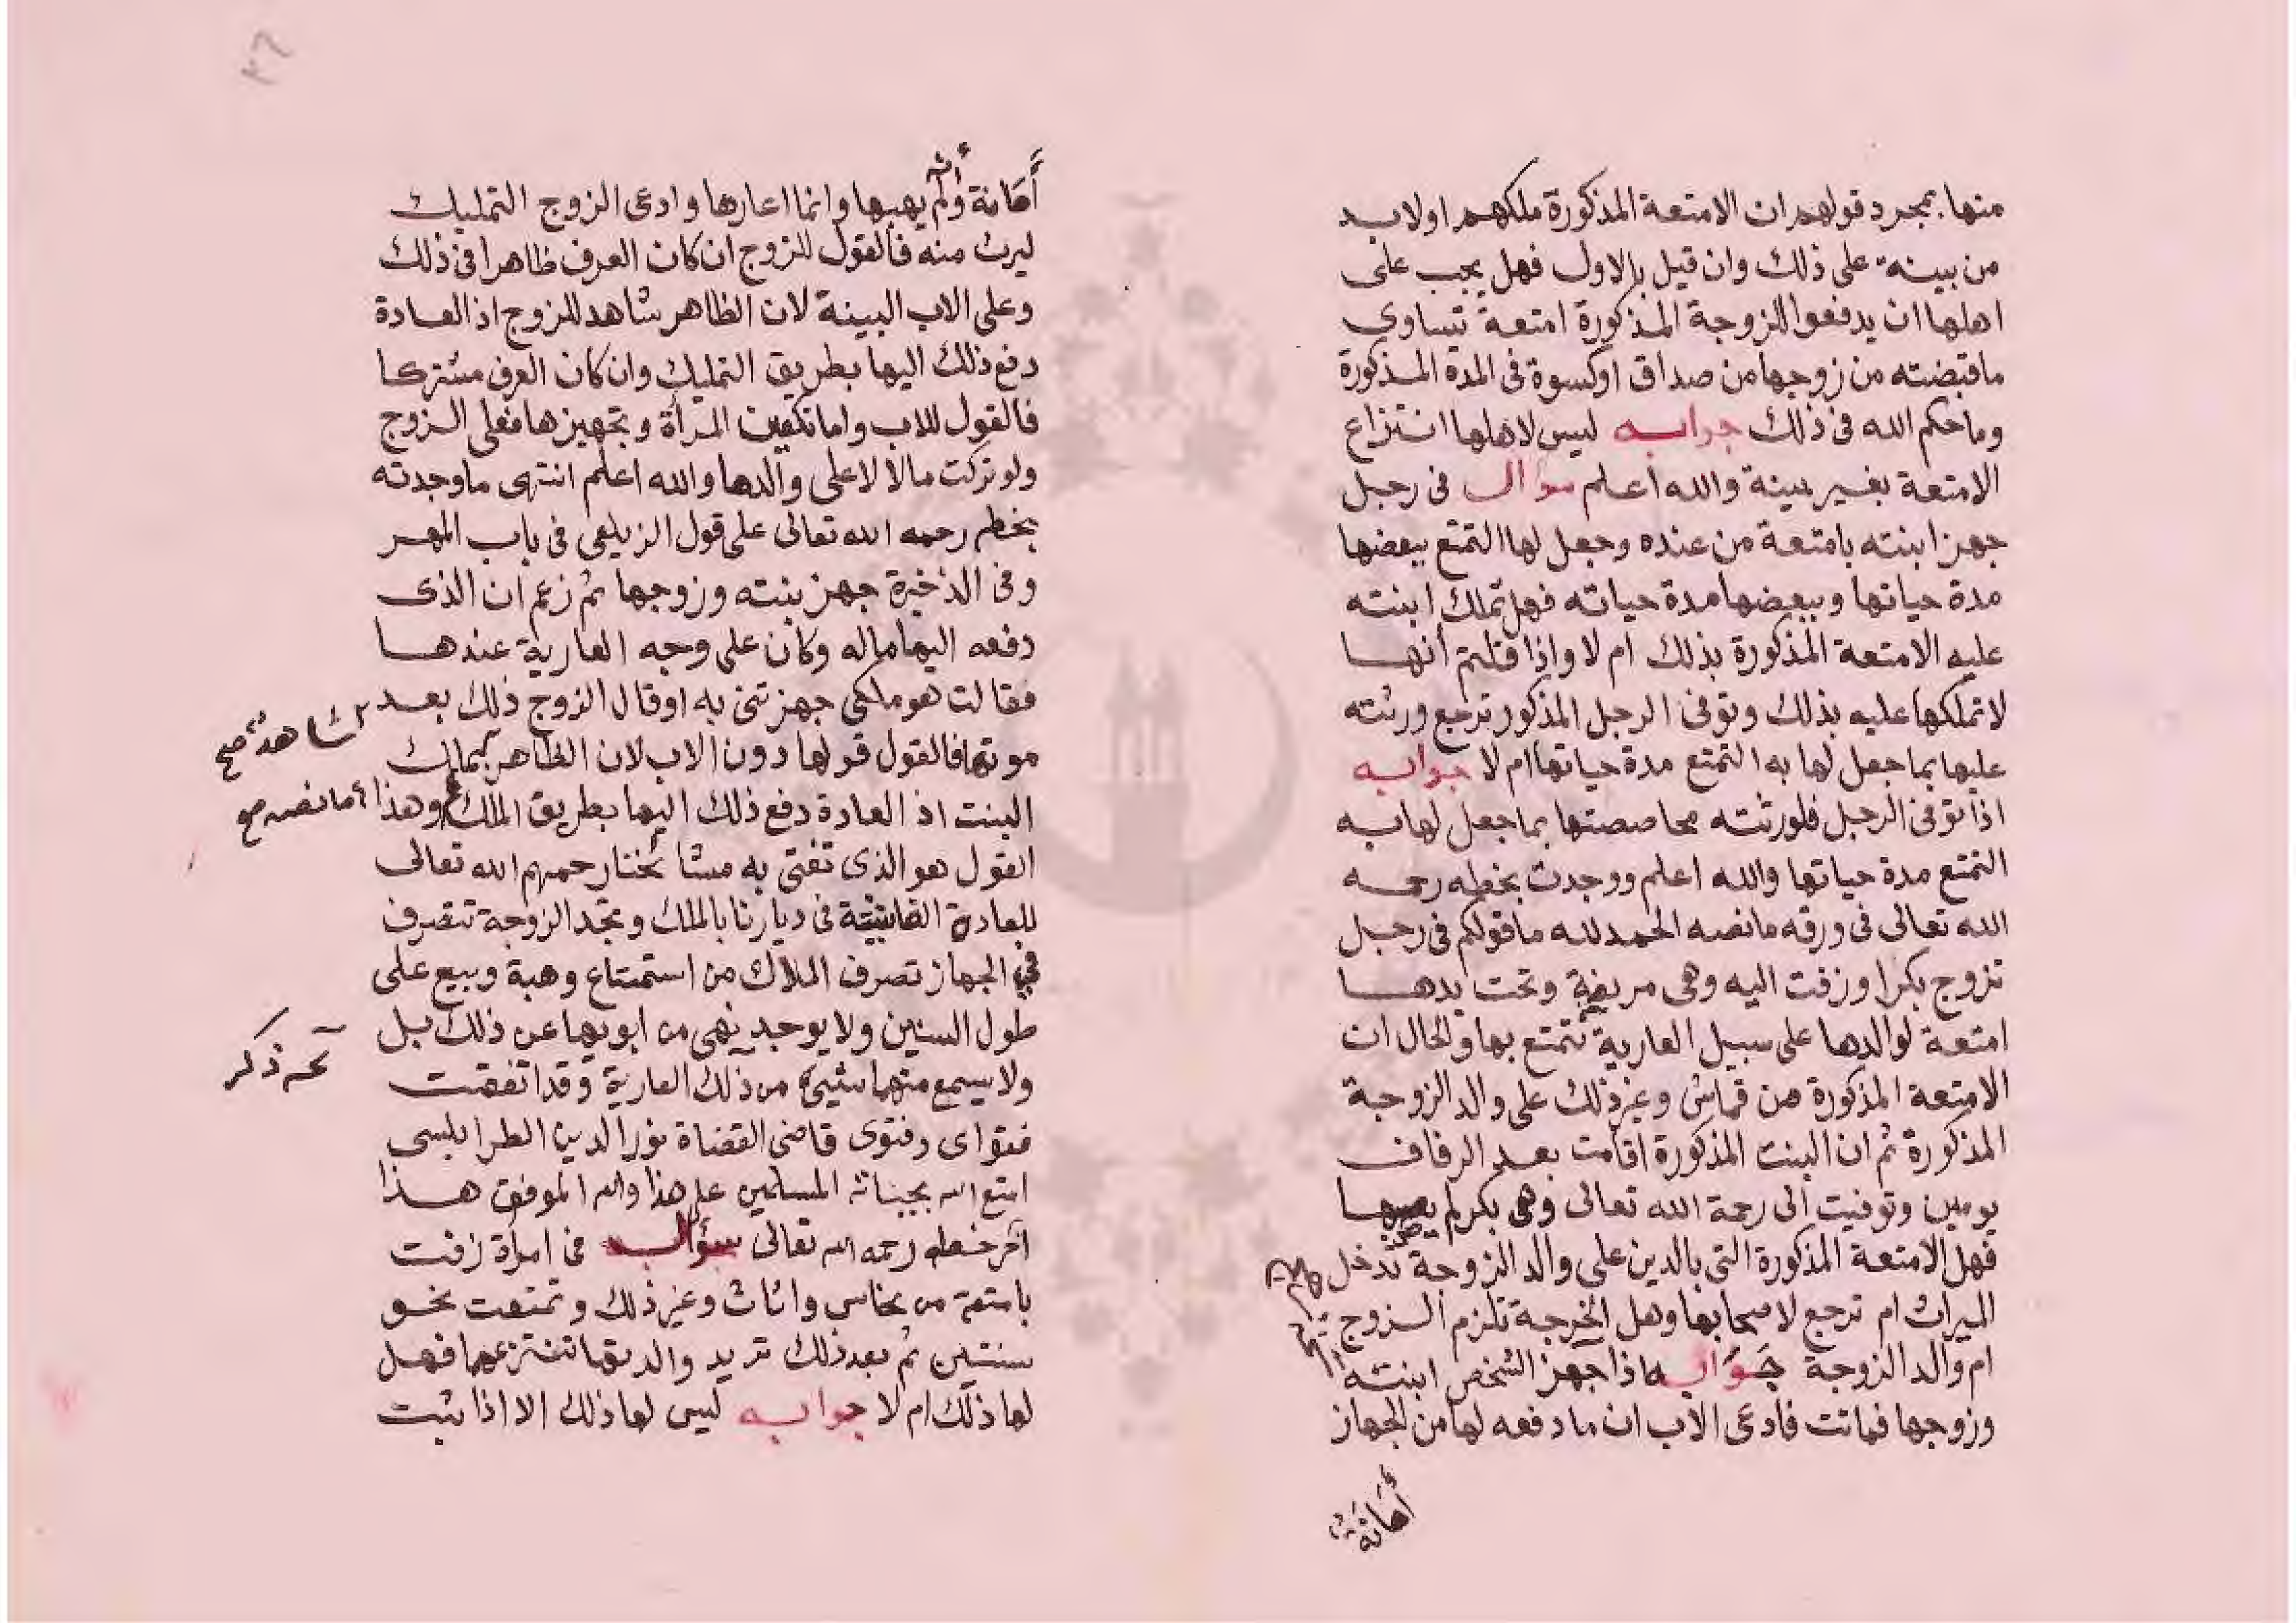 منها بمجرد قولهم ان الامتعة المذكورة ملكهم اولابد
من بينة على ذلك وان قيل بالاول فهل يجب على
اهلها ان يدفعوا للزوجة المذكورة امتعة تساوي
ماقبضته من زوجها من صداق اوكسوة فى المدة المذكورة
وماحكم الله فى ذلك جوابه ليس لاهلها انتزاع
الامتعة بغير بينة والله اعلم سؤال فى رجل
جهز ابنته بامتعة من عنده وجعل لها التمتع ببعضها
مدة حياتها وببعضها مدة حياته فهل تملك ابنته
عليه الامتعة المذكورة بذلك ام لا واذا قلتم أنها
لاتملكها عليه بذلك وتوفى الرجل المذكور ترجع ورثته
عليها بما جعل لها به التمتع مدة حياتها ام لا جوابه
اذا توفى الرجل فلورثته محاصصتها بما جعل لها به
التمتع مدة حياتها والله اعلم ووجدت بخطه رحمه
الله تعالى فى ورقه مانصه الحمد لله ماقولكم فى رجل
تزوج بكرا وزفت اليه وهى مريضة وتحت يدها
امتعة لوالدها على سبيل العارية تتمتع بها والحال ان
الامتعة المذكورة من قماش وغير ذلك على والد الزوجة
المذكورة ثم ان البنت المذكورة اقامت بعد الزفاف
يومين وتوفيت الى رحمة الله تعالى وهى بكر لم يصبها
فهل الامتعة المذكورة التى بالدين على والد الزوجة تدخل
الميراث ام ترجع لاصحابها وهل الخرجة تلزم الزوج
ام والد الزوجة جوابه اذا جهز الشخص ابنته
وزوجها فماتت فادعى الاب ان مادفعه لها من الجهاز
أمانة
أمانة ولم يهبها وانما اعارها وادعى الزوج التمليك
ليرث منه فالقول للزوج ان كان العرف ظاهرا فى ذلك
وعلى الاب البينة لان الظاهر شاهد للزوج اذ العادة
دفع ذلك اليها بطريق التمليك وان كان العرف مشتركا
فالقول للاب واما تكفين المرأة وتجهيزها فعلى الزوج
ولو تركت مالا لا على والدها والله اعلم انتهى ماوجدته
بخطه رحمه الله تعالى على قول الزيلعى فى باب المهر
وفى الذخيرة جهز بنته وزوجها ثم زعم ان الذى
دفعه اليها ماله وكان على وجه العارية عندها
فقالت هو ملكى جهزتنى به اوقال الزوج ذلك بعد
موتها فالقول قولها دون الاب لان الظاهر بملك
شاهد صح
البنت اذ العادة دفع ذلك اليها بطريق الملك وهذا
مانصه صح
القول هو الذى تفتى به مشا رحمهم الله تعالى
للعادة فى ديارنا بالملك وتجد الزوجة تتصرف
في الجهاز تصرف الملاك من استمتاع وهبة وبيع على
طول السنين ولا يوجد نهى من ابويها عن ذلك بل
ذكر
ولا يسمع منهما شيئ من ذلك العارية وقد اتفقت
فتواى وفتوى قاضى القضاة نور الدين الطرابلسى
امتع الله بحياته المسلمين على هذا والله الموفق هذا
آخر خطه رحمه الله تعالى سؤال فى امرأة زفت
بامتعة من نحاس واثاث وغير ذلك وتمتعت نحو
سنتين ثم بعد ذلك تريد والدتها تنتزعها فهل
لها ذلك ام لا جوابه ليس لها ذلك الا اذا ثبت